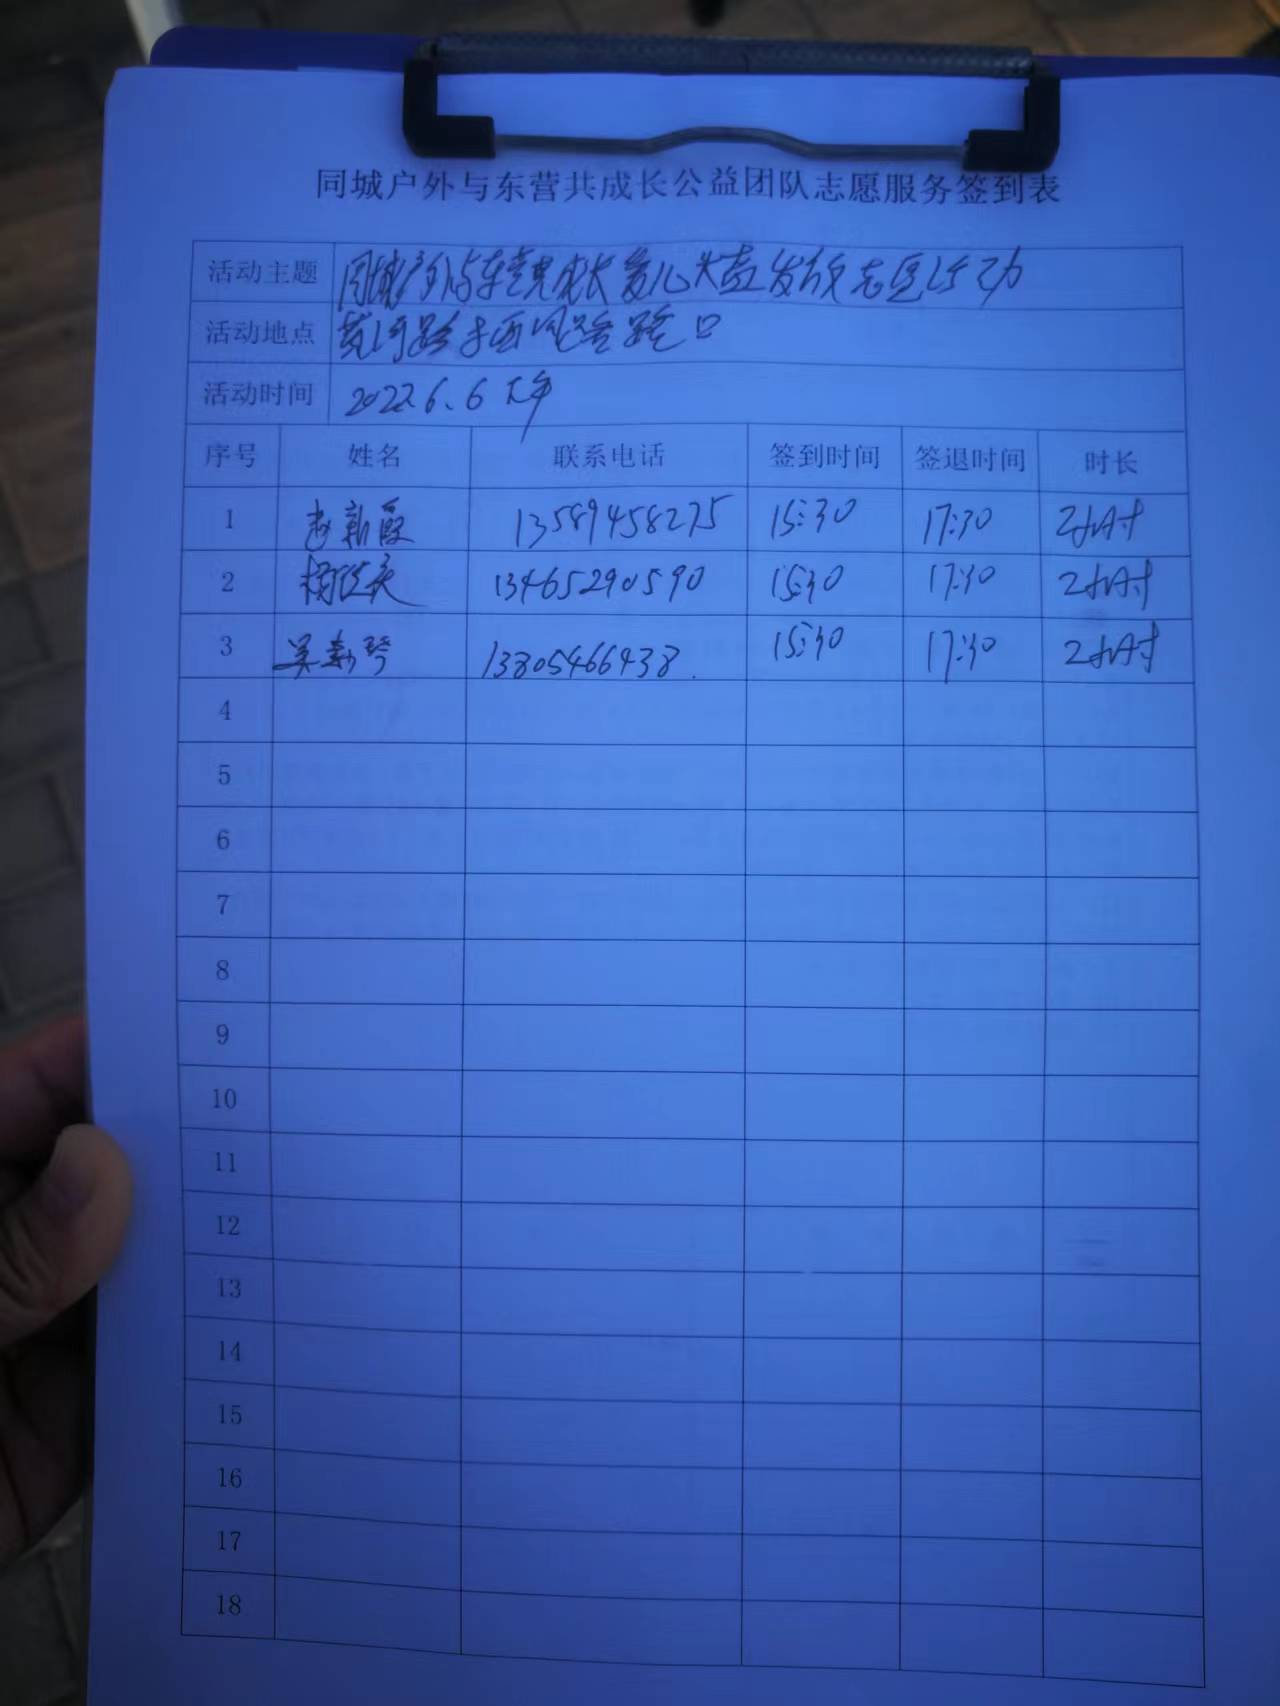 同城户外与东营共成长公益团队志愿服务签到表
活动主题 同城户外与东营共成长爱心头盔发放志愿行动
活动地点 黄河路与西四路路口
活动时间 2022.6.6 下午
序号 姓名 联系电话 签到时间 签退时间 时长
1 赵新霞 13589458275 15:30 17:30 2小时
2 杨 13465290590 15:30 17:30 2小时
3 吴 琴 13805466438. 15:30 17:30 2小时
4
5
6
7
8
9
10
11
12
13
14
15
16
17
18